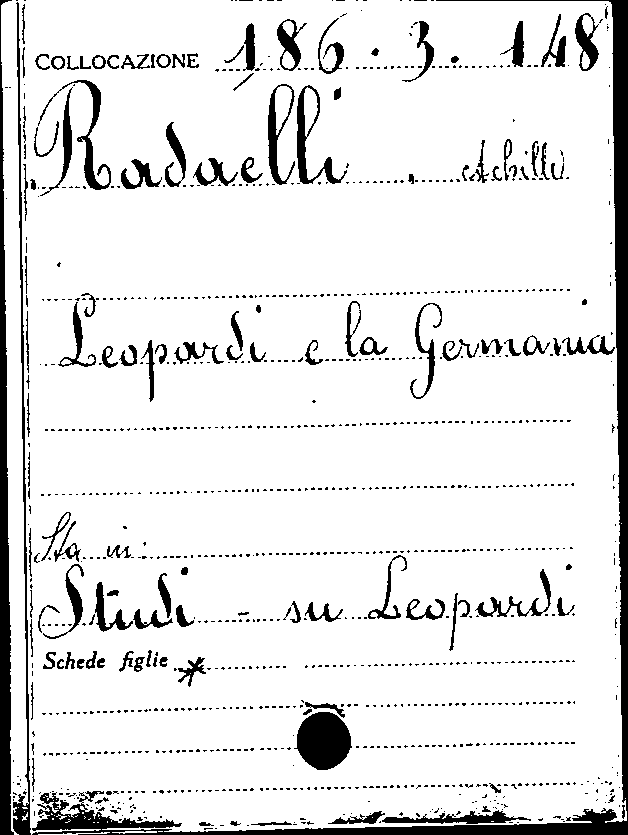 COLLOCAZIONE 186. 3. 148
Radaelli. Achille
Leopardi e la Germania
Sta in:
Studi - su Leopardi
Schede figlie *